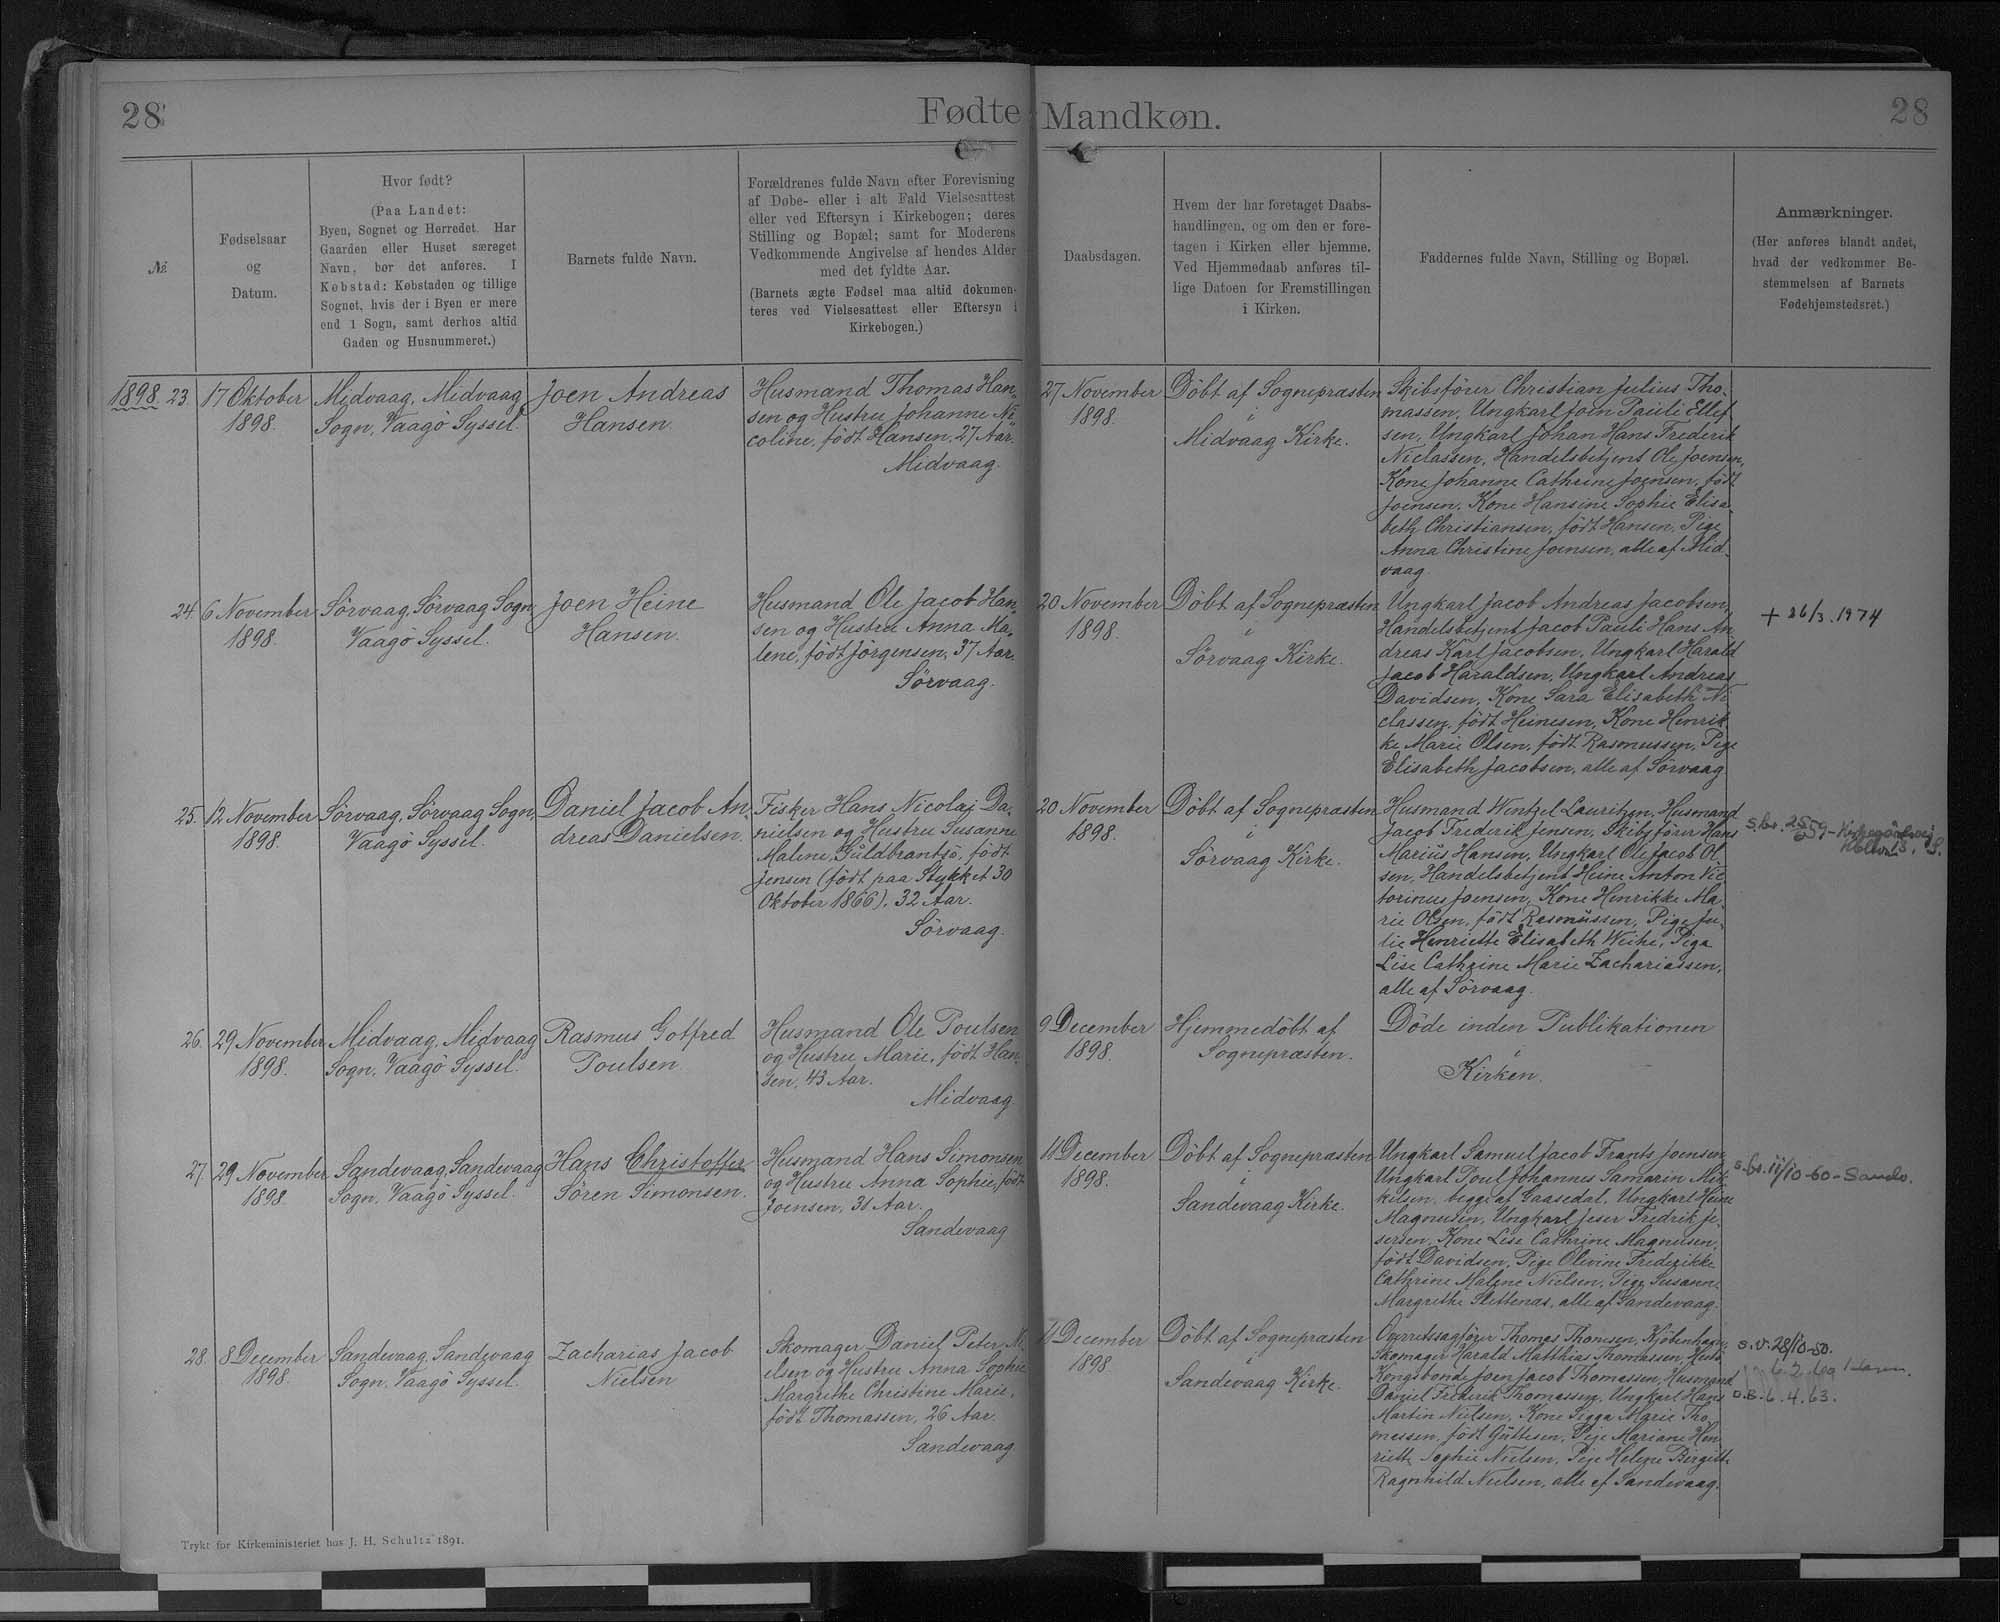 28
Fødte
Mandkøn.
28
№
Fødselsaar
og
Datum.
Hvor født?
(Paa Landet:
Byen, Sognet og Herredet. Har
Gaarden eller Huset særeget
Navn, bør det anføres. I
Købstad: Købstaden og tillige
Sognet, hvis der i Byen er mere
end 1 Sogn, samt derhos altid
Gaden og Husnummeret.)
Barnets fulde Navn.
Forældrenes fulde Navn efter Forevisning
af Døbe- eller i alt Fald Vielsesattest
eller ved Eftersyn i Kirkebogen; deres
Stilling og Bopæl; samt for Moderens
Vedkommende Angivelse af hendes Alder
med det fyldte Aar.
(Barnets ægte Fødsel maa altid dokumen-
teres ved Vielsesattest eller Eftersyn i
Kirkebogen.)
Daabsdagen.
Hvem der har foretaget Daabs-
handlingen, og om den er fore-
tagen i Kirken eller hjemme.
Ved Hjemmedaab anføres til-
lige Datoen for Fremstillingen
i Kirken.
Faddernes fulde Navn, Stilling og Bopæl.
Anmærkninger.
(Her anføres blandt andet,
hvad der vedkommer Be-
stemmelsen af Barnets
Fødehjemstedsret.)
1898. 23.
17 Oktober
1898.
Midvaag, Midvaag
Sogn, Vaagö Syssel.
Joen Andreas
Hansen
Husmand Thomas Han-
sen og Hustru Johanne Ni-
coline, født Hansen, 27 Aar.
Midvaag.
27 November
1898.
Döbt af Sognepræsten
i
Midvaag Kirke.
Skibsförer Christian Julius Tho-
massen, Ungkarl Joen Pauli Ellef-
sen, Ungkarl Johan Hans Frederik
Niclassen, Handelsbetjent Ole Joensen,
Kone Johanne Cathrine Joensen, födt
Joensen, Kone Hansine Sophie Elisa-
beth Christiansen, födt Hansen, Pige
Anna Christine Joensen, alle af Mid-
vaag
24.
6 November
1898.
Sörvaag, Sörvaag Sogn,
Vaagö Syssel.
Joen Heine
Hansen.
Husmand Ole Jacob Han-
sen og Hustru Anna Ma-
lene, födt Jörgensen, 37 Aar.
Sörvaag.
20 November
1898.
Döbt af Sognepræsten
i
Sörvaag Kirke.
Ungkarl Jacob Andreas Jacobsen,
Handelsbetjent Jacob Pauli Hans An-
dreas Karl Jacobsen, Ungkarl Harald
Jacob Haraldsen, Ungkarl Andreas
Davidsen, Kone Sara Elisabeth Ni-
classen, födt Heinesen, Kone Henrik-
ke Marie Olsen, födt Rasmussen, Pige
Elisabeth Jacobsen, alle af Sörvaag
+ 26/3. 1974
25.
12 November
1898.
Sörvaag, Sörvaag Sogn,
Vaagö Syssel.
Daniel Jacob An-
dreas Danielsen.
Fisker Hans Nicolaj Da-
nielsen og Hustru Susanne
Malene Guldbrantsö, födt
Jensen (födt paa Stykket 30
Oktober 1866), 32 Aar.
Sörvaag.
20 November
1898.
Döbt af Sognepræsten
i
Sörvaag Kirke.
Husmand Wentzel Lauritzen, Husmand
Jacob Frederik Jensen, Skibsförer Hans
Marius Hansen, Ungkarl Ole Jacob Ol-
sen, Handelsbetjent Heine Anton Vic-
torinus Joensen, Kone Henrikke Ma-
rie Olsen, födt Rasmussen, Pige Ju-
lie Henriette Elisabeth Weihe, Pige
Lise Cathrine Marie Zachariassen,
alle af Sörvaag.
26.
29 November
1898.
Midvaag, Midvaag
Sogn, Vaagö Syssel.
Rasmus Gotfred
Poulsen
Husmand Ole Poulsen
og Hustru Marie, födt Han-
sen, 43 Aar.
Midvaag
9 December
1898.
Hjemmedöbt af
Sognepræsten.
Döde inden Publikationen
i
Kirken.
27.
29 November
1898.
Sandevaag, Sandevaag
Sogn, Vaagö Syssel.
Hans Christoffer
Sören Simonsen.
Husmand Hans Simonsen
og Hustru Anna Sophie, födt
Joensen, 31 Aar.
Sandevaag
11 December
1898.
Döbt af Sognepræsten
i
Sandevaag Kirke.
Ungkarl Samuel Jacob Frants Joensen
Ungkarl Poul Johannes Samarin Mik-
kelsen, begge af Gaasedal, Ungkarl Heine
Magnusen, Ungkarl Jeser Fredrik Je-
sersen, Kone Lise Cathrine Magnusen,
födt Davidsen, Pige Olevine Frederikke
Cathrine Malene Nielsen, Pige Susanne
Margrethe Slettenas, alle af Sandevaag.
s.br. 11/10-60-Sandv.
28.
8 December
1898.
Sandevaag, Sandevaag
Sogn, Vaagö Syssel.
Zacharias Jacob
Nielsen
Skomager Daniel Peter Ni-
elsen og Hustru Anna Sophie
Margrethe Christine Marie,
födt Thomassen, 26 Aar.
Sandevaag.
11 December
1898
Döbt af Sognepræsten
i
Sandevaag Kirke.
Overretssagförer Thomas Thomsen, Kjöbenhavn,
Skomager Harald Matthias Thomassen,
Kongsbonde Joen Jacob Thomassen, Husmand
Daniel Frederik Thomassen, Ungkarl Hans
Martin Nielsen, Kone Sigga Marie Tho-
massen, födt Guttesen, Pige Mariane Hen-
riette Sophie Nielsen, Pige Helene Birgitte
Ragnhild Nielsen, alle af Sandevaag.
s.v. 28/10-50.
6.2.69
D.B. 6.4.63.
Trykt for Kirkeministeriet hos J. H. Schultz 1891.